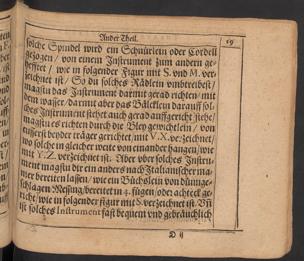 Ander Theil.
19
solche Spindel wird ein Schnürlein oder Cordell
gezogen / von einem Instrument zum andern ge-
/ wie in folgender Figur mit S. vnd M. ver-
zeichnet ist / So du solches Rädlein vmbtreibest /
magstu das Instrument darmit gerad richten / mit
dem wasser / darmit aber das Bälcklein darauff sol-
ches Instrument stehet auch gerad auffgericht stehe /
magstu es richten durch die Bleygewichtlein / von
eusserst beyder träger gerichtet / mit V. X. verzeichnet /
wo solche in gleicher weite von einander hangen / wie
mit Y. Z. verzeichnet ist. Aber vber solches Instru-
ment magstu dir ein anders nach Italianischer ma-
nier bereiten lassen / wie ein Büchslein von dünnge-
schlagen Messing / bereitet in 4. fügen / oder achteck ge-
richt / wie in folgender figur mit S. verzeichnet ist. Vñ
ist solches Instrument fast bequem vnd gebräuchlich
D ij